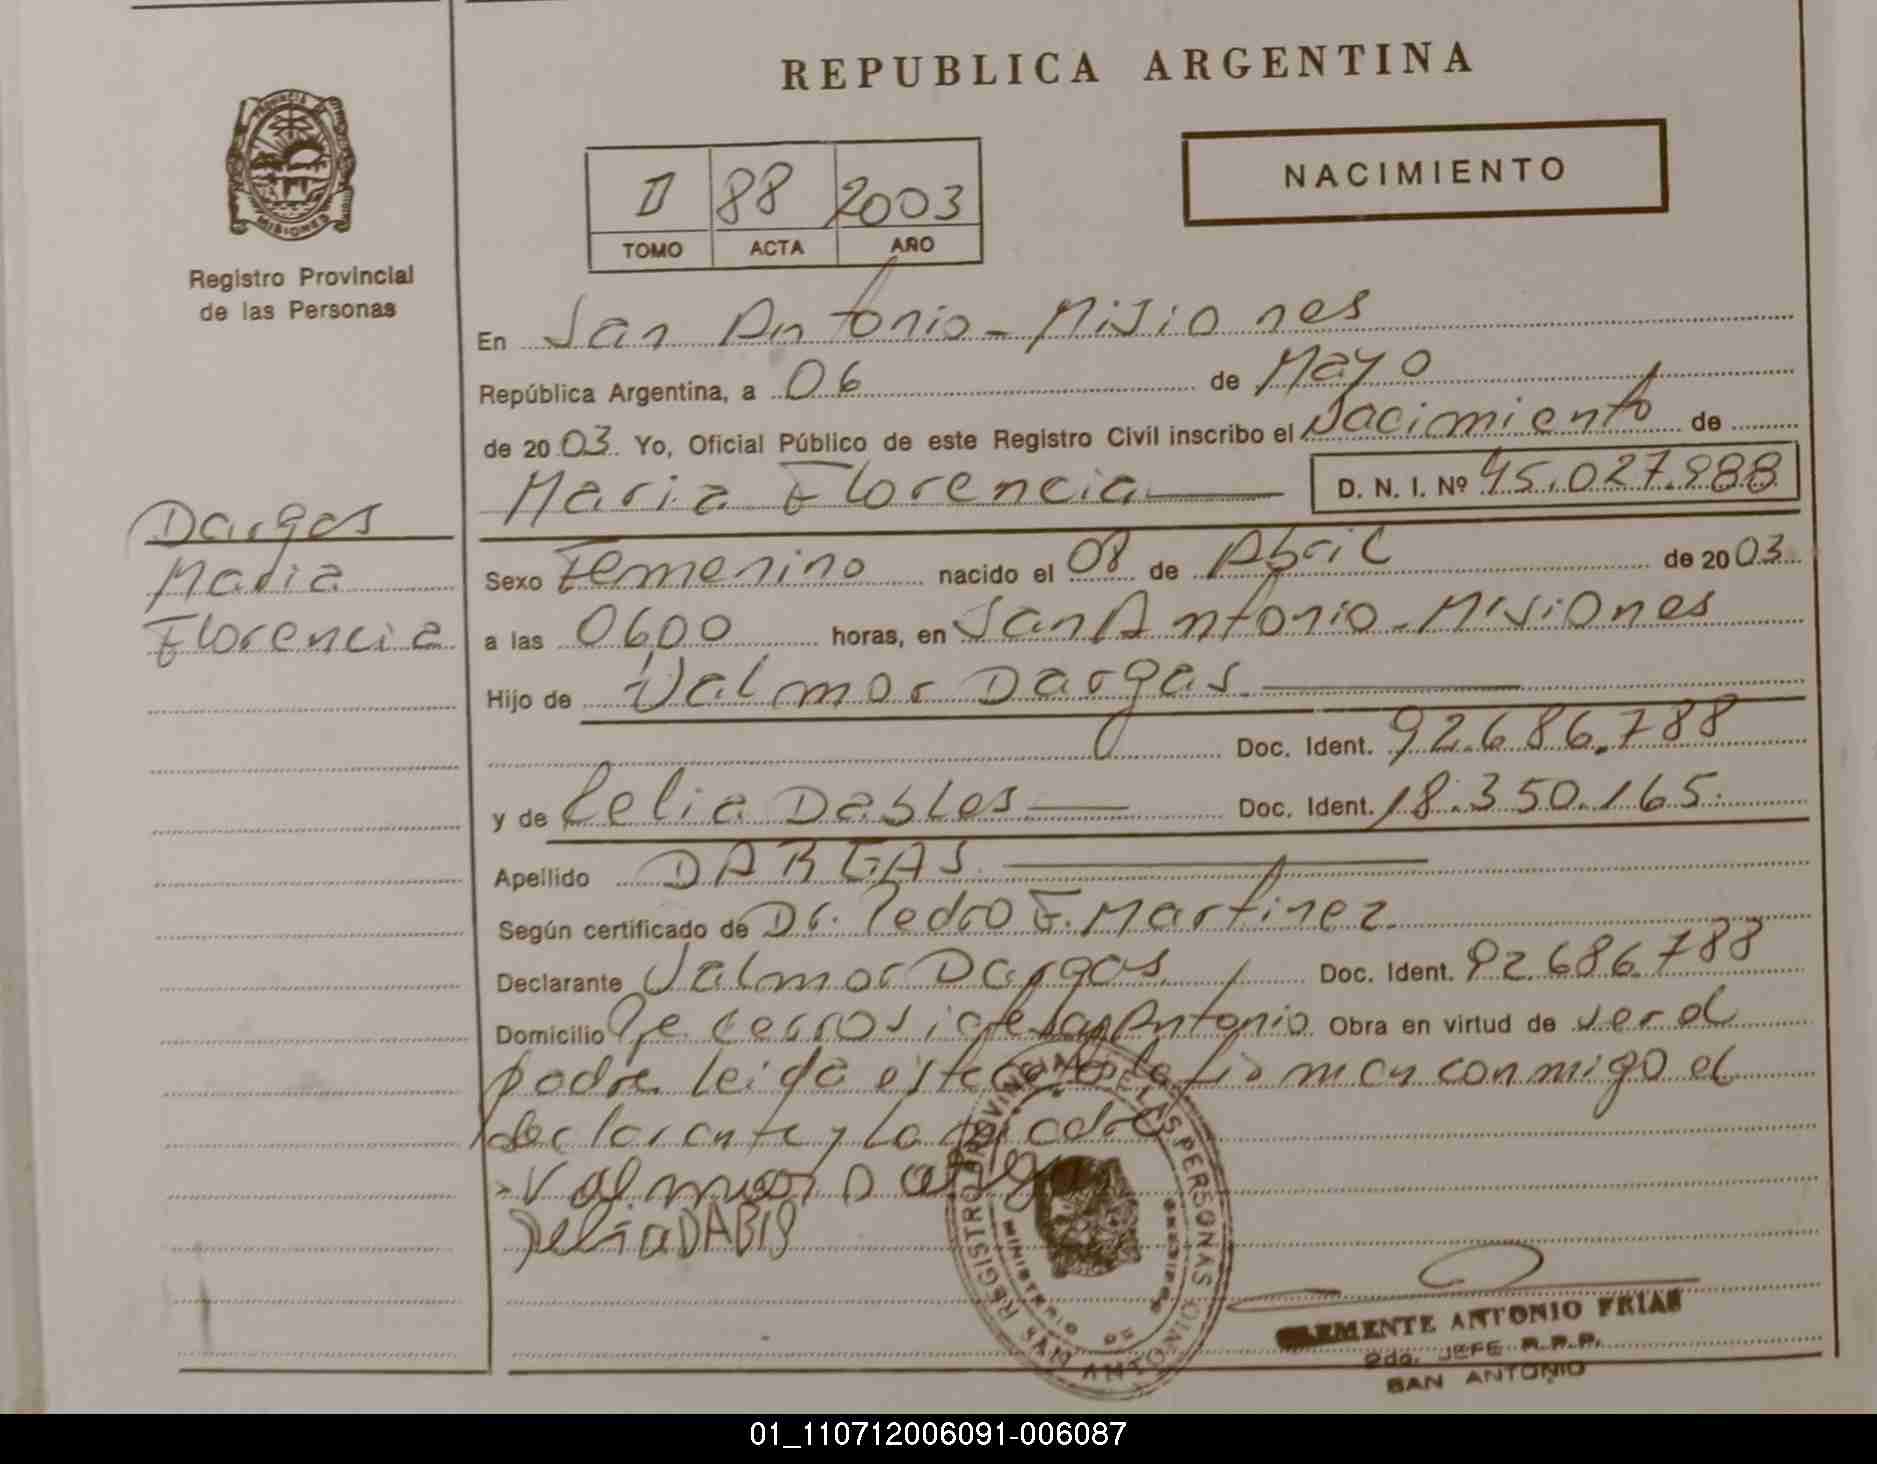 REPUBLICA ARGENTINA
PROVINCIA DE
MISIONES
Registro Provincial
de las Personas
II 88 2003
TOMO ACTA AÑO
NACIMIENTO
En San Antonio - Misiones
República Argentina, a 06 de Mayo
de 2003. Yo, Oficial Público de este Registro Civil inscribo el Nacimiento de
Maria Florencia D. N. I. Nº 45.027.988
Dargas
Maria
Florencia
Sexo Femenino nacido el 08 de Abril de 2003
a las 06,00 horas, en San Antonio - Misiones
Hijo de Valmor Dargas
Doc. Ident. 92.686.788
y de Celia Dables Doc. Ident. 18.350.165.
Apellido DARGAS
Según certificado de Dr. Pedro E. Martinez
Declarante Valmor Dargas Doc. Ident. 92.686.788
Domicilio San Antonio Obra en virtud de ser el
padre leida este acta la firman conmigo el
declarante y la madre
Valmor Darga
Selia DABIS
REGISTRO PROVINCIAL DE LAS PERSONAS
MINISTERIO DE GOBIERNO
SAN ANTONIO
CLEMENTE ANTONIO FRIAS
2do. JEFE R.P.P.
SAN ANTONIO
01_110712006091-006087